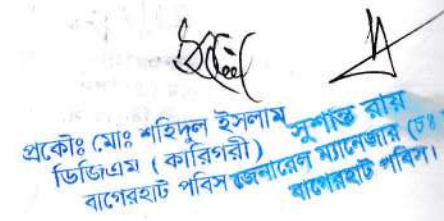 প্রকৌঃ মোঃ শহিদুল ইসলাম
ডিজিএম (কারিগরী)
বাগেরহাট পবিস
সুশান্ত রায়
জেনারেল ম্যানেজার (চঃ
বাগেরহাট পবিস।